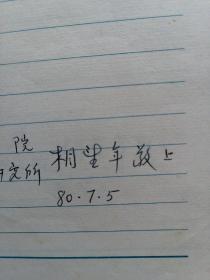 院
研究所 相望年敬上
80.7.5